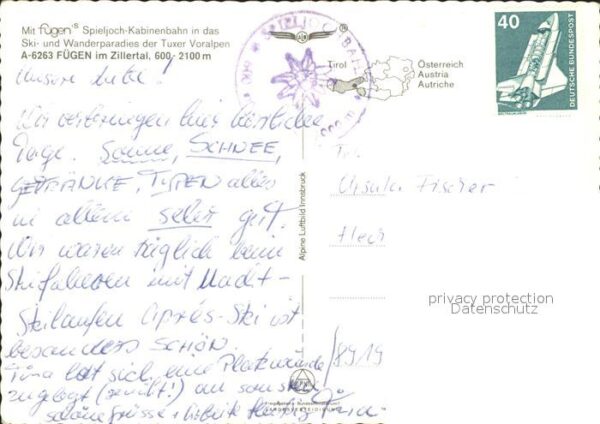 Mit fügen's Spieljoch-Kabinenbahn in das
Ski- und Wanderparadies der Tuxer Voralpen
A-6263 FÜGEN im Zillertal, 600,- 2100 m
Unsere
Wir verbringen hier herrliche
Tage. Sonne, SCHNEE,
GETRÄNKE, TYPEN alles
in allem sehr gut.
Wir waren täglich beim
Skifahren mit Nacht-
Skilaufen Après-Ski ist
besonders SCHÖN.
hat sich eine Platzwunde
zugelegt (genäht!) am
schöne Grüsse
SPIELJOCH BAHN
Tirol
Österreich
Austria
Autriche
Alpine Luftbild Innsbruck
40
DEUTSCHE BUNDESPOST
Ursula Fischer
8919
privacy protection
Datenschutz